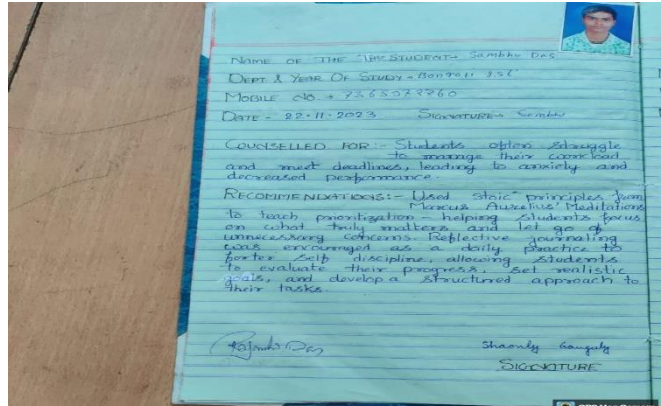 NAME OF THE STUDENT → Sambhu Das
DEPT & YEAR OF STUDY -
MOBILE NO. →
DATE - 22-11-2023 SIGNATURE Sambhu
COUNSELLED FOR :- Students often struggle
to manage their workload
and meet deadlines, leading to anxiety and
decreased performance.
RECOMMENDATIONS:- Used stoic principles from
Marcus Aurelius' Meditations
to teach prioritization - helping students focus
on what truly matters and let go of
unnecessary concerns. Reflective journaling
was encouraged as a daily practice to
forter self discipline, allowing students
to evaluate their progress, set realistic
goals, and develop a structured approach to
their tasks.
Das Shaonly Ganguly
SIGNATURE